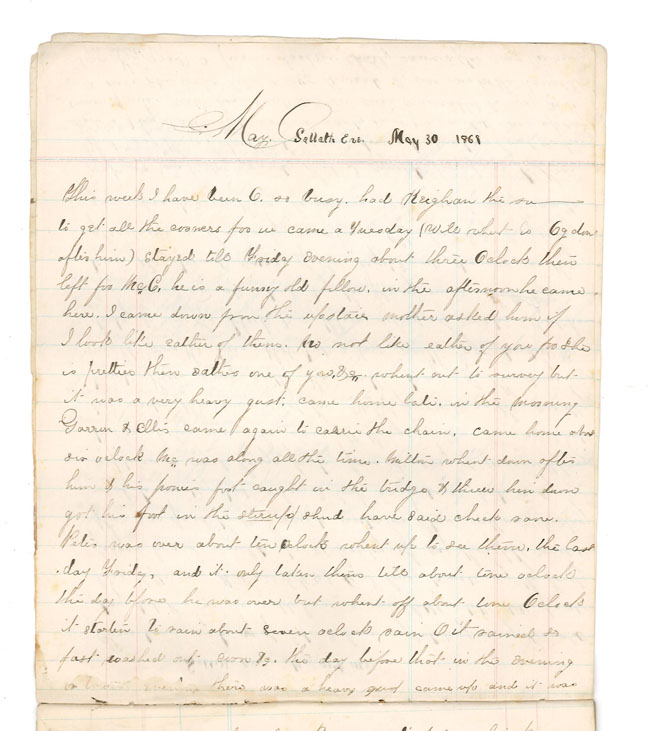 May. Sabbath Eve. May 30 1868
This week I have been O. so busy. had Meighan the su
to get all the corners for us came a Tuesday (Will whent to Ogdon
after him) stayed till Fridy evening about three Oclock then
left for McC. he is a funny old fellow. in the afternoon he came
here. I came down from the upstairs mother asked him if
I look like eather of them. no not like eather of you for she
is prettier then eather one of you, &c. whent out to survey but
it was a very heavy gust. came home late. in the morning
& Ellis came again to carrie the chain. came home about
six oclock Mc was along all the time. Milton whent down after
him & his ponies foot caught in the bridge & threw him down
got his foot in the stirrup / shud have said check rane.
Peter was over about ten oclock whent up to see them. the last
day Fridy, and it only taken them till about one oclock
the day before he was over but whent off about one Oclock
it starten to rain about seven oclock rain O it rained so
fast washed out corn &c. the day before that in the evening
there was a heavy gust came up and it was